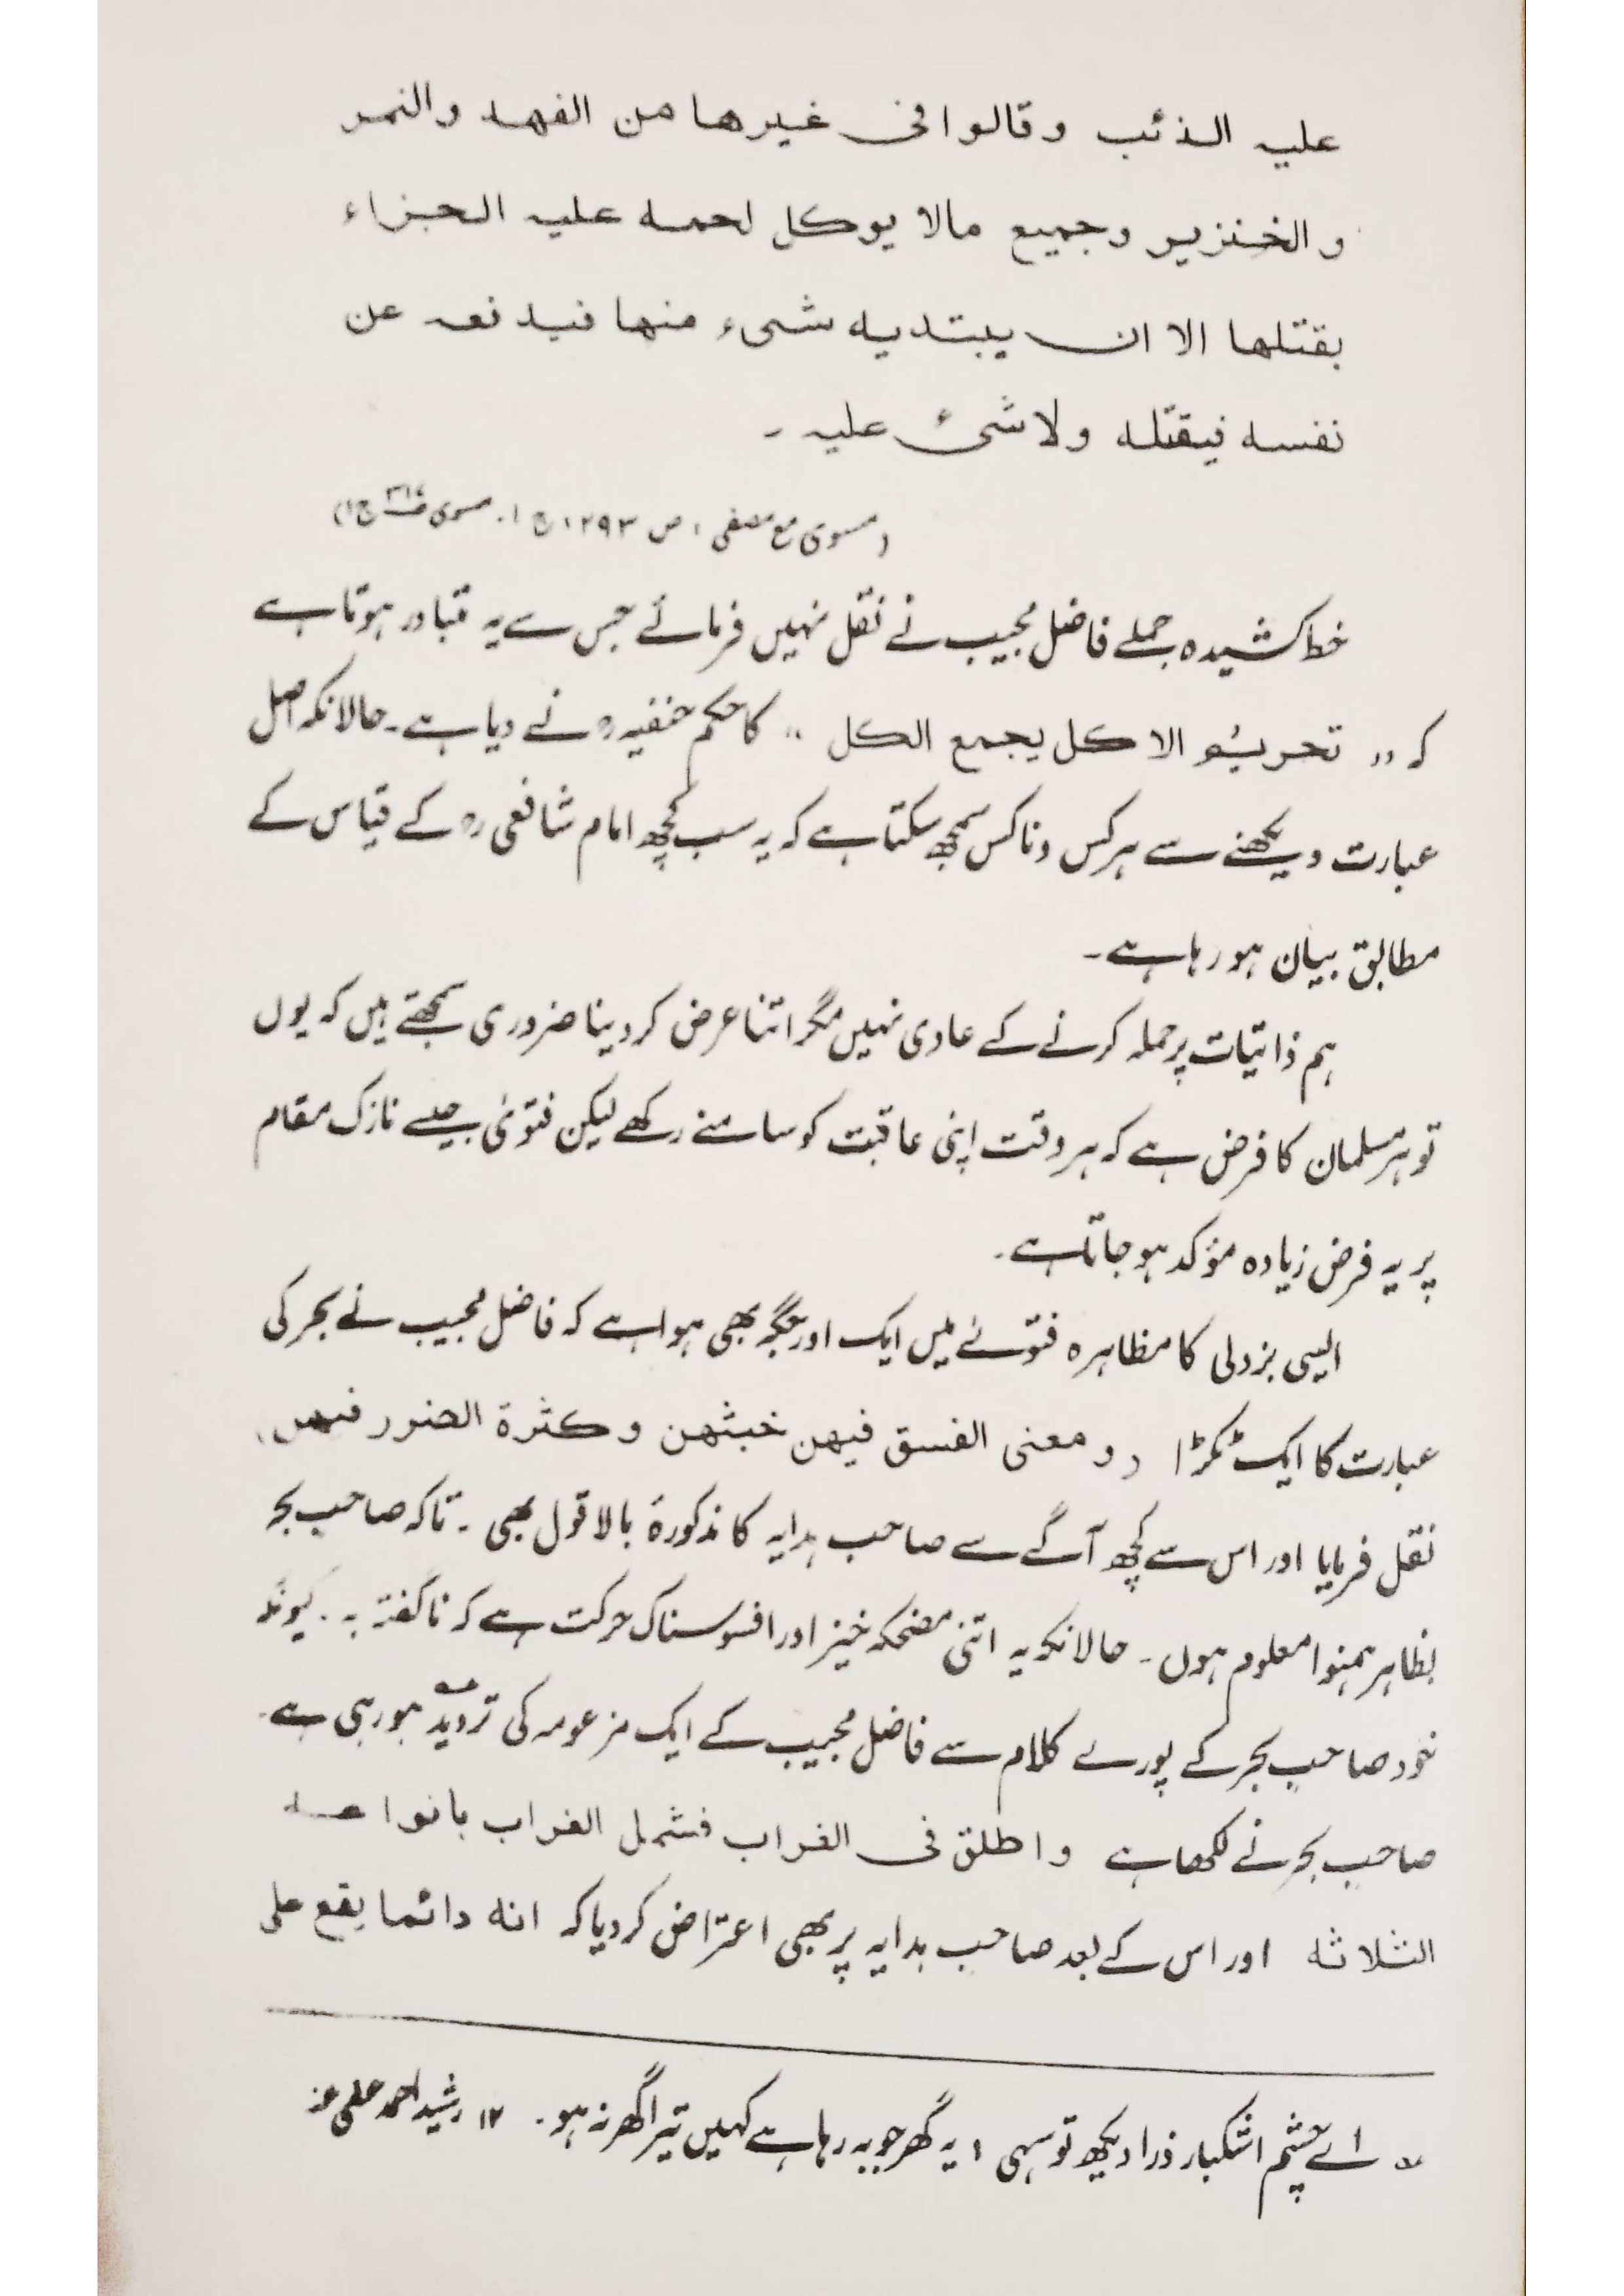 عليہ الذئب وقالوا فی غیرها من الفهد والنمر
والخنزیر وجمیع مالا یوکل لحمه علیہ الجزاء
بقتلها الا ان یبتدیہ شیء منها فیدفعہ عن
نفسه فیقتله ولا شیٔ علیہ ـ
(مسوی مع مصفی، ص ۲۹۳، ج ۱. مسوی ج ۱)
خط کشیدہ جملے فاضل مجیب نے نقل نہیں فرمائے جس سے یہ متبادر ہوتا ہے
کہ ,, تحریم الاکل یجمع الکل ،، کا حکم حنفیہؒ نے دیا ہے۔ حالانکہ اصل
عبارت دیکھنے سے ہر کس و ناکس سمجھ سکتا ہے کہ یہ سب کچھ امام شافعیؒ کے قیاس کے
مطابق بیان ہو رہا ہے۔
ہم ذاتیات پر حملہ کرنے کے عادی نہیں مگر اتنا عرض کر دینا ضروری سمجھتے ہیں کہ یوں
تو ہر مسلمان کا فرض ہے کہ ہر وقت اپنی عاقبت کو سامنے رکھے لیکن فتویٰ جیسے نازک مقام
پر یہ فرض زیادہ مؤکد ہو جاتا ہے۔
ایسی بزدلی کا مظاہرہ فتوے میں ایک اور جگہ بھی ہوا ہے کہ فاضل مجیب نے بحر کی
عبارت کا ایک ٹکڑا (ومعنی الفسق فیهن خبثهن وکثرة الضرر فیهن)
نقل فرمایا اور اس سے کچھ آگے سے صاحب ہدایہ کا مذکورۂ بالا قول بھی۔ تاکہ صاحب بحر
بظاہر ہمنوا معلوم ہوں۔ حالانکہ یہ اتنی مضحکہ خیز اور افسوسناک حرکت ہے کہ ناگفتہ بہ۔ کیونکہ
خود صاحبِ بحر کے پورے کلام سے فاضل مجیب کے ایک مزعومہ کی تردید ہو رہی ہے۔
صاحبِ بحر نے لکھا ہے واطلق فی الغراب فشمل الغراب بانواعه
الثلاثه اور اس کے بعد صاحب ہدایہ پر بھی اعتراض کر دیا کہ انه دائما یقع علی
؎ اے چشم اشکبار ذرا دیکھ تو سہی ، یہ گھر جو بہہ رہا ہے کہیں تیرا گھر نہ ہو۔ ۱۲ رشید احمد عفی عنہ